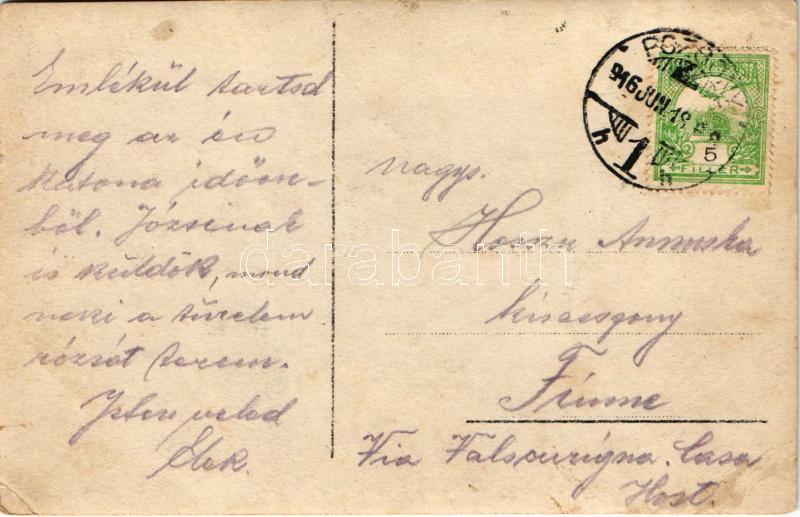 Emlékül tartsd
meg az én
katona időm-
ből. Józsinak
is küldök, mond
neki a türelem
rózsát terem.
Isten veled
Elek.
nagys.
Hosszu Annuska
kisacsgony
Fiume
Via Valscurigna. Casa
Host.
POZSONY
916 JUN 18
1
h
5
FILLER
darabanth